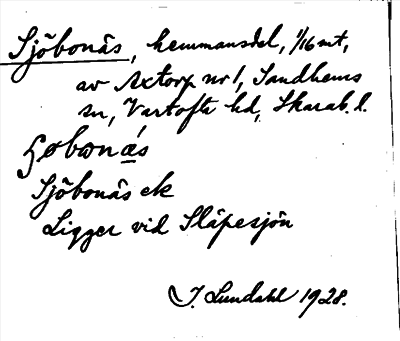 Sjöbonäs, hemmansdel, 1/16 mt,
av Axtorp nr 1, Sandhems
sn, Vartofta hd, Skarab. l.
Sjöbonäs ek
Ligger vid Släpesjön
J. Lundahl 1928.